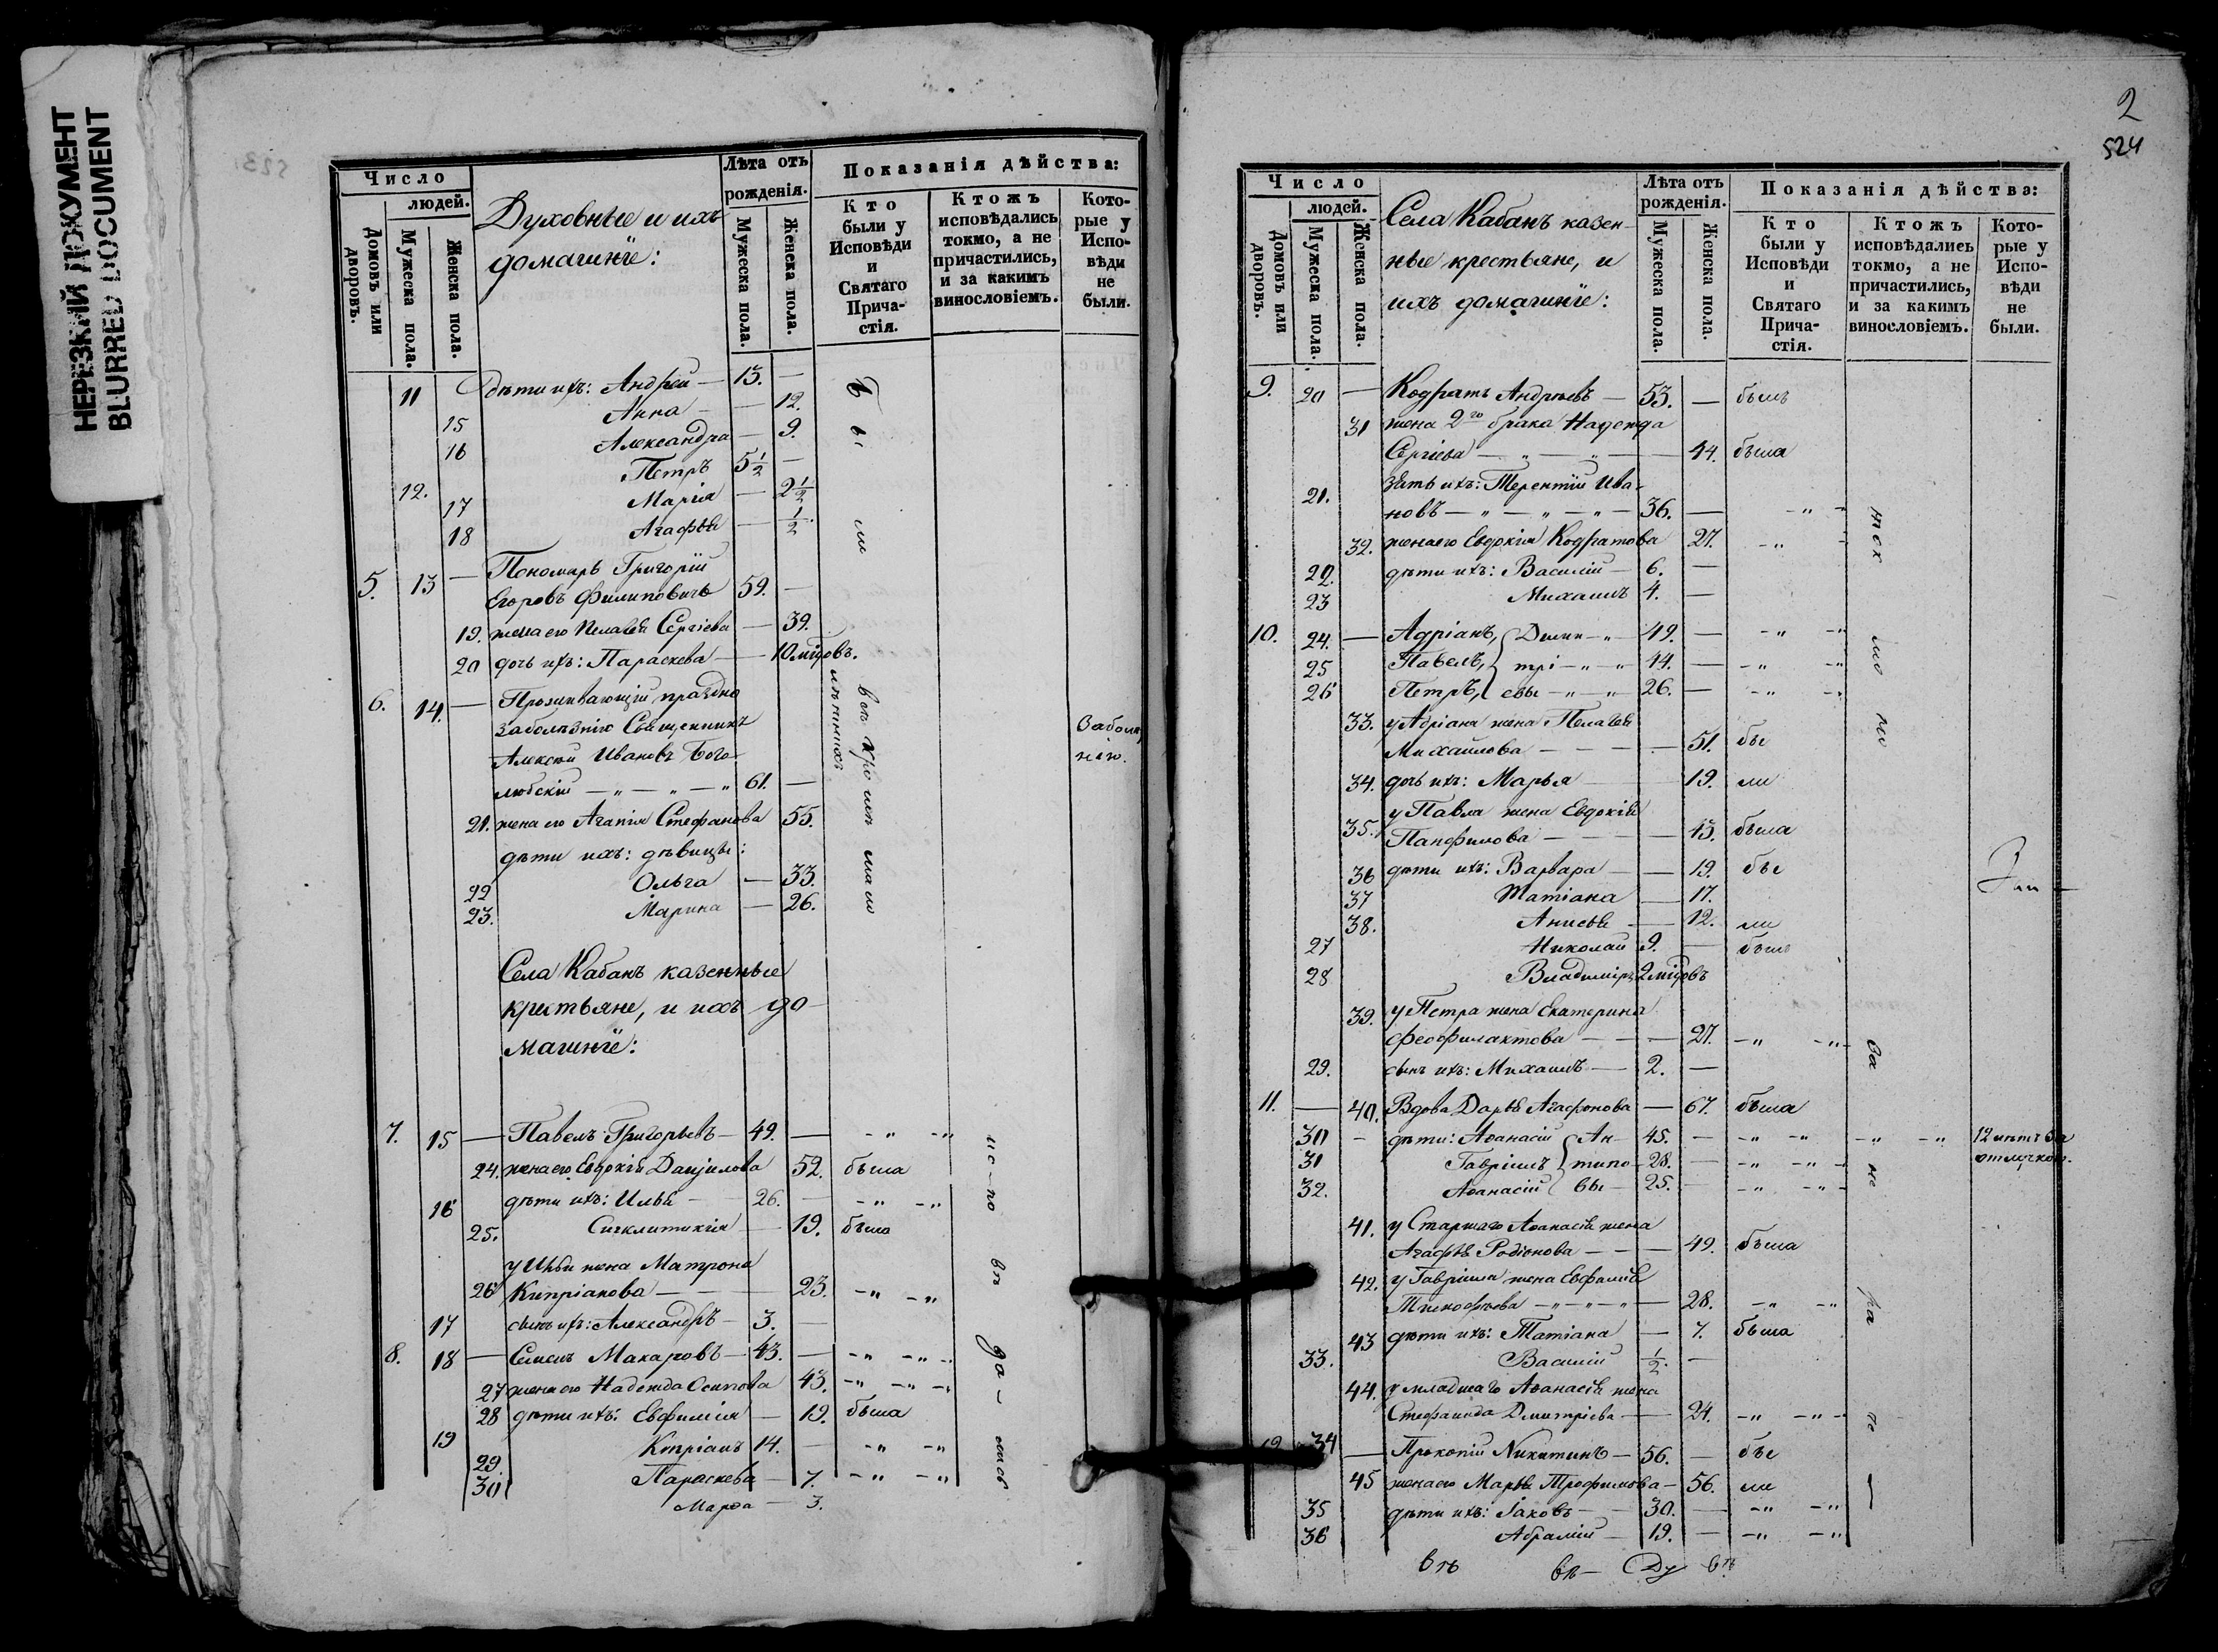 НЕРЕЗКИЙ ДОКУМЕНТ
BLURRED DOCUMENT
Число
людей.
Домовъ или дворовъ.
Мужеска пола.
Женска пола.
Духовные и ихъ
домашніе:
Лѣта отъ
рожденія.
Мужеска пола.
Женска пола.
Показанія дѣйства:
Кто
были у
Исповѣди
и
Святаго
Прича-
стія.
Ктожъ
исповѣдались
токмо, а не
причастились,
и за какимъ
винословіемъ.
Кото-
рые у
Испо-
вѣди
не
были.
11 дѣти ихъ: Андрей — 13. —
15 Анна — — 12.
16 Александра — 9.
12. Петръ 5½ —
17 Марія — 2½
18 Агафья — ½.
5. 13 — Пономарь Григорій
Егоровъ Филиповичъ 59. —
19. жена его Пелагея Сергіева — 39.
20 дочь ихъ: Параскева — 10 мѣ
6. 14. — Проживающій праздно
за болѣзнію Священникъ
Алексѣй Ивановъ Бого-
любскій — „ — „ — „ 61. —
21. жена его Агапія Стефанова 55.
дѣти ихъ: дѣвицы:
22 Ольга — 33.
23. Марина — 26.
Села Кабанъ казенные
крестьяне, и ихъ до-
машніе:
7. 15 — Павелъ Григорьевъ — 49. — -„ -„
24. жена его Евдокія Даніилова 52. была
16 дѣти ихъ: Илья — 26. — -„ -„
25. Сигклитикія — 19. была
у Ильи жена Матрона
26 Кипріанова — — 23. -„ -„
17 сынъ ихъ: Александръ — 3. —
8. 18 — Семенъ Макаровъ — 43. — -„ -„
27 жена его Надежда Осипова 43. -„ -„
28 дѣти ихъ: Евфимія — 19. была
19 Кипріанъ 14. — -„ -„
29. Параскева — 7. -„ -„
30 Марѳа — 3.
2
524
Число
людей.
Домовъ или дворовъ.
Мужеска пола.
Женска пола.
Села Кабанъ казен-
ные крестьяне, и
ихъ домашніе:
Лѣта отъ
рожденія.
Мужеска пола.
Женска пола.
Показанія дѣйства:
Кто
были у
Исповѣди
и
Святаго
Прича-
стія.
Ктожъ
исповѣдались
токмо, а не
причастились,
и за какимъ
винословіемъ.
Кото-
рые у
Испо-
вѣди
не
были.
9. 20 — Кодратъ Андреевъ — 53. — былъ
31 жена 2го брака Надежда
Сергіева — „ — „ — 44. была
21. зять ихъ: Терентій Ива-
новъ — „ — „ — „ — 36. — -„ -
32. жена его Евдокія Кодратова 27. -„ -
22. дѣти ихъ: Василій — 6. —
23 Михаилъ 4. —
10. 24. — Адріанъ, Дими-„- 49. — -„ -„
25 Павелъ, трі-„-„ 44. — -„ -„
26 Петръ, евы -„-„ 26. — -„ -„
33. у Адріана жена Пелагея
Михайлова — — — 51. бы
34. дочь ихъ: Марья — 19. ли
у Павла жена Евдокія
35. Панфилова — — — 43. была
36 дѣти ихъ: Варвара — — 19. бы
37 Татіана — 17.
38. Анисья — 12. ли
27 Николай 9. — былъ
28 Владиміръ 2 мѣ
39. у Петра жена Екатерина
Феофилактова — — 27. -„ -„
29. сынъ ихъ: Михаилъ — 2. —
11. — 40. Вдова Дарья Агафонова — 67. была
30 - дѣти: Аѳанасій Ан- 45. — -„ -„ -„ -„ 12 лѣтъ въ
отлучкѣ.
31 Гавріилъ типо- 28. — -„ -„
32. Аѳанасій вы — 25. — -„ -„
41. у Старшаго Аѳанасія жена
Агафья Родіонова — — — 49. была
42. у Гавріила жена Евфимія
Тимофеева -„-„-„ — 28. -„ -„
43 дѣти ихъ: Татіана — 7. была
33. Василій ½. —
44. у младшаго Аѳанасія жена
Стефанида Дмитріева — 24. -„ -„
12 34 — Прокопій Никитинъ — 56. — бы
45 жена его Марья Трофимова — 56. ли
35 дѣти ихъ: Іаковъ — 30. — -„ -„
36 Абрамій — 19. — -„ -„